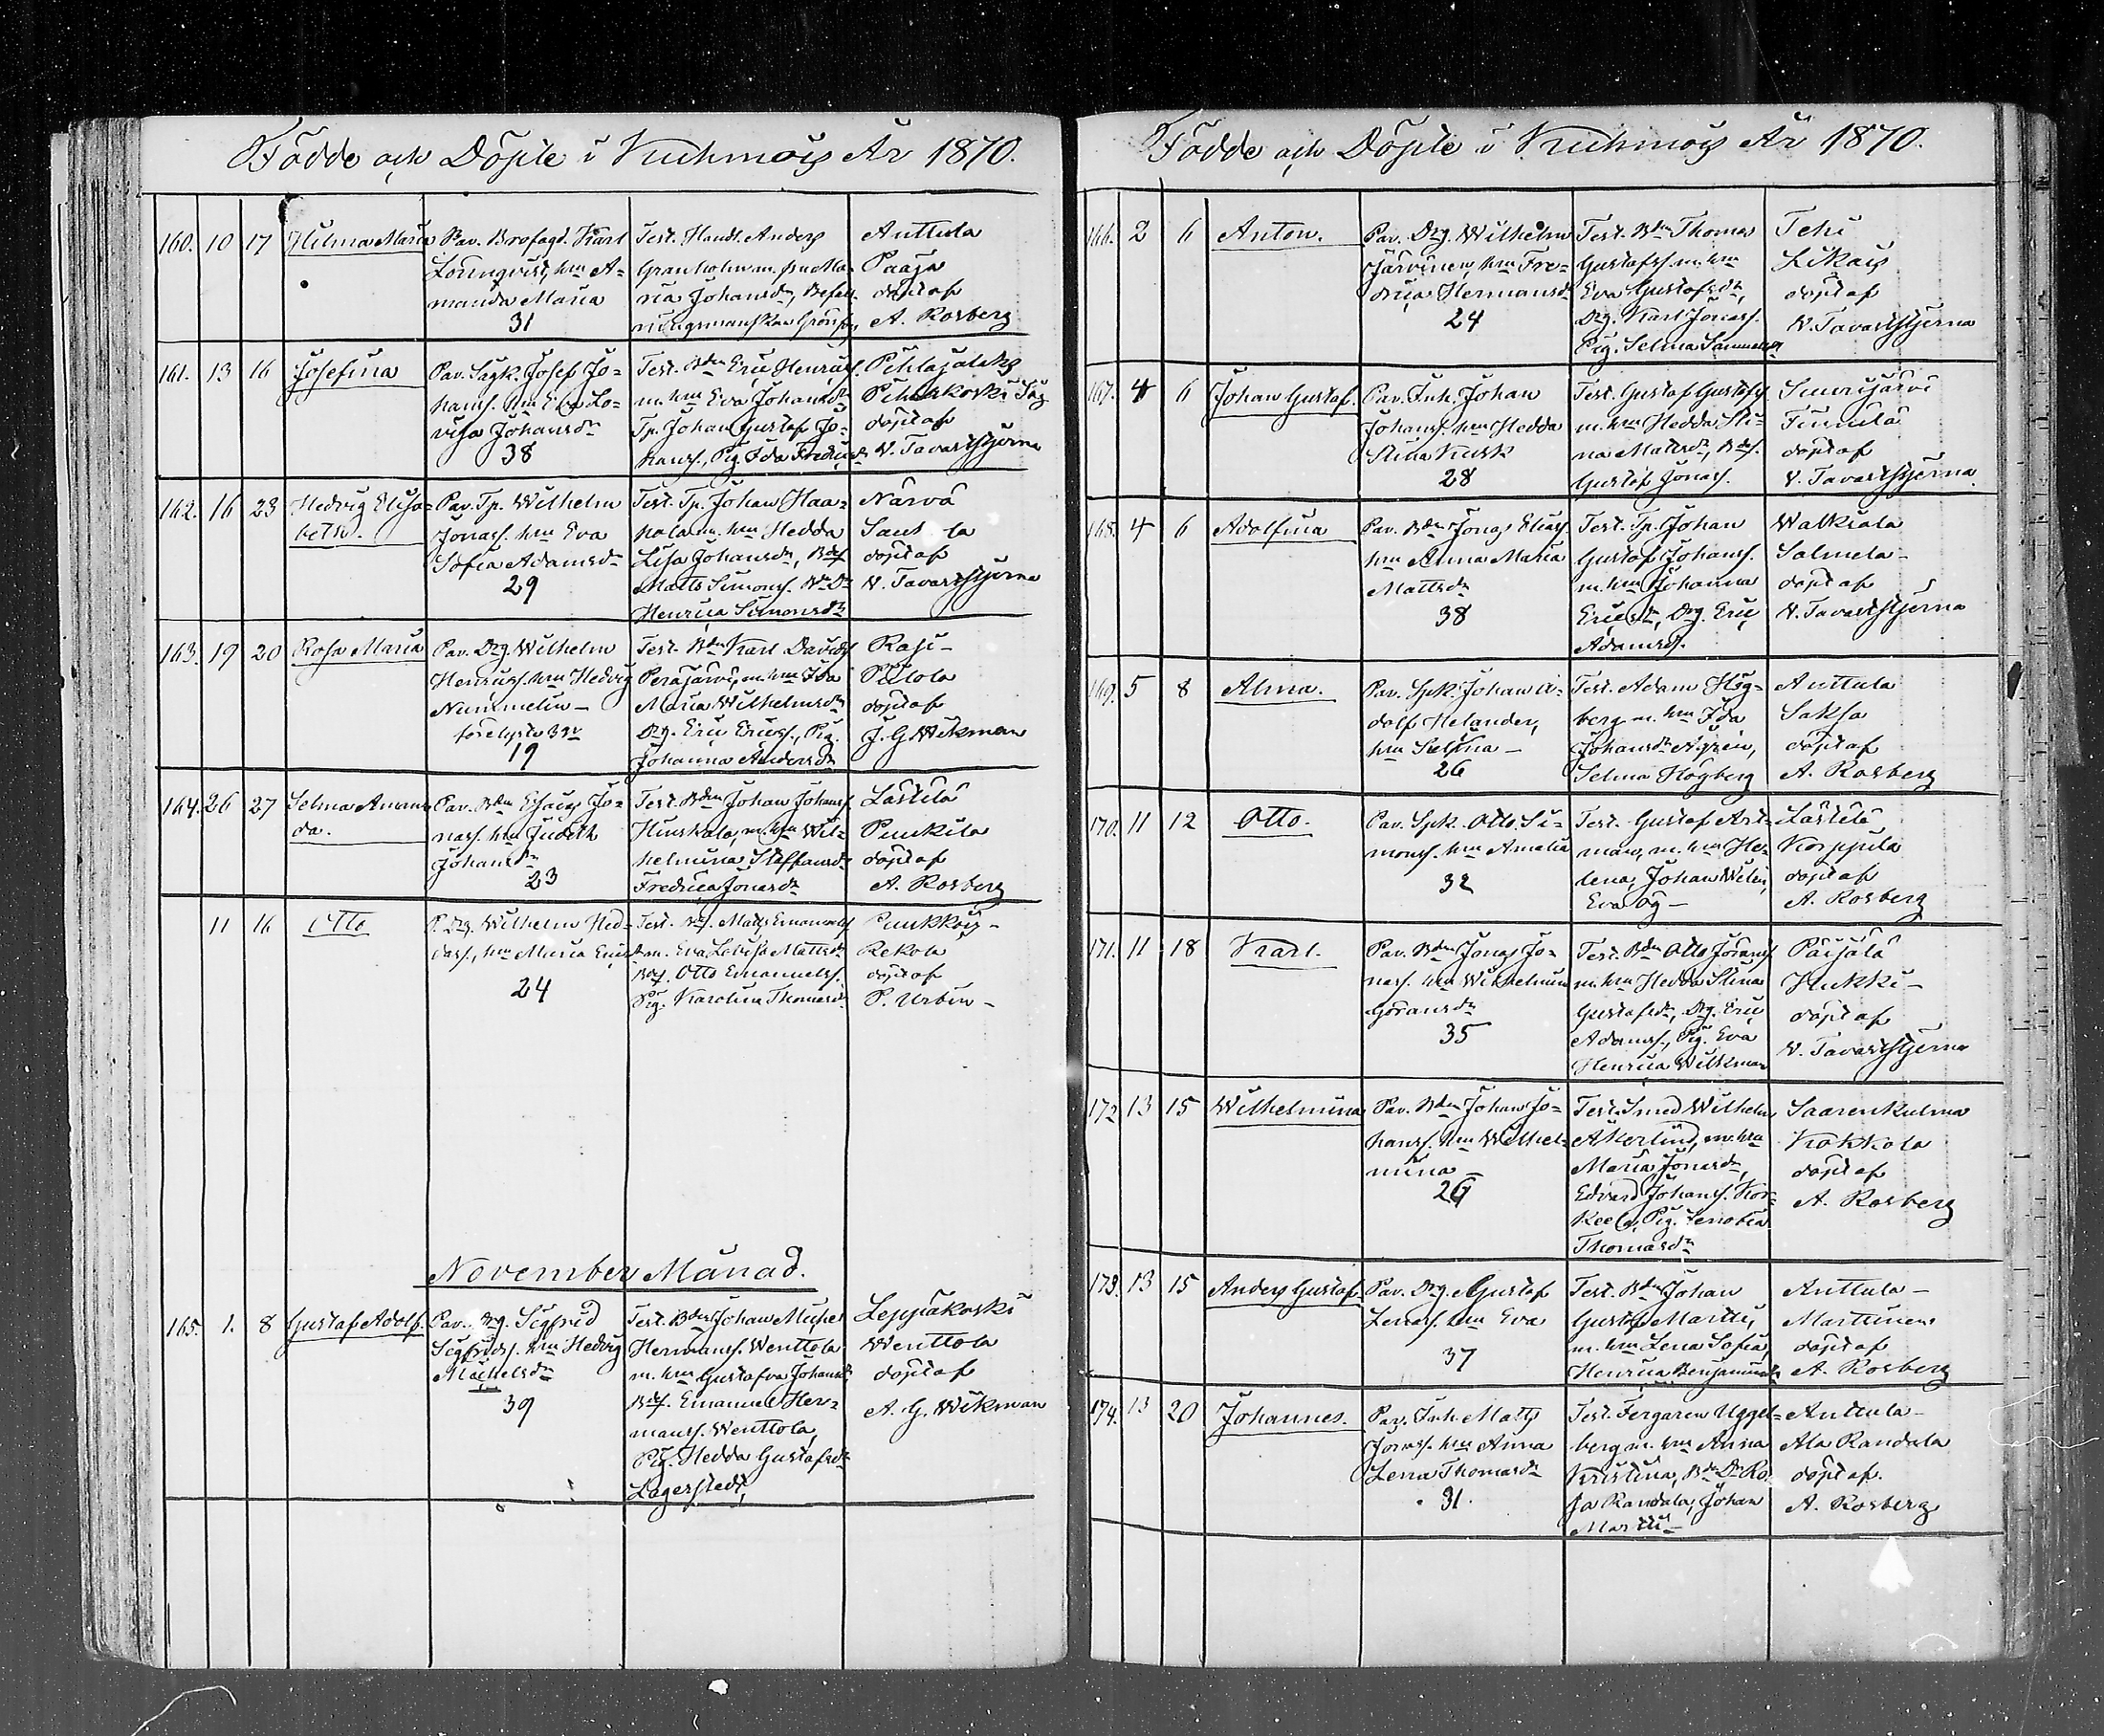 Födde och Döpte i Kuhmois År 1870.
160. 10 17 Hilma Maria
Pav. Brofogd. Karl
amanda Maria
31
Test. Handl. Anders
Granholm m. fru Ma-
ria Johansdr, Befall-
Anttula
Paaja
döpt af
A. Rosberg
161. 13 16 Josefina
Pav. Sagk. Josef Jo-
hanss. hm Eva Lo-
visa Johansdr
38
Test. Bdn Eric Henricss.
m. hm Eva Johansdr
Tp. Johan Gustaf Jo-
hanss., Pig. Ida Fredricsdr
Pihlajakoski Såg
döpt af
V. Tavaststjerna
162. 16 23 Hedvig Elisa-
beth.
Pav. Tp. Wilhelm
Jonass. hm Eva
Sofia Adamsdr
29
Test. Tp. Johan Haa-
pala m. hm Hedda
Lisa Johansdr, Bdss
Matts Simonss. Bdn Dr
Henrica Simonsdr
Närvä
Sant la
döpt af
V. Tavaststjerna
163. 19 20 Rosa Maria
Pav. Drg. Wilhelm
Henricss. hm Hedvig
Nummelin –
19
Test. Bdn Karl Davidss.
Perajärvi, m. hm Ida
Maria Wilhelmsdr
Drg. Eric Ericss., Pig.
Johanna Andersdr
Rasi –
Pätola
döpt af
J. G. Wikman
164. 26 27 Selma Aman-
da.
Pav. Bdn Esaias Jo-
nass. hm Judith
Johansdr
23
Test. Bdn Johan Johanss.
Hinskala, m. hm Wil-
helmina Staffansdr
Fredrica Jonasdr
Lästilä
Puukila
döpt af
A. Rosberg
11 16 Otto
P. Drg. Wilhelm Hed-
dass., hm Maria Ericsdr
24
Test. Bdss. Matts Emanuelss.
m. Eva Lovisa Mattsdr
Bdss. Otto Emanuelss.
Pig. Karolina Thomasdr
Puukkois –
Rekola
döpt af
P. Urbin –
November Månad.
165. 1. 8 Gustaf Adolf.
Pav. Drg. Sigfrid
Sigfridss. hm Hedvig
Michelsdr
39
Test. Bdn Johan Michel
Hermanss. Wenttola
m. hm Gustafva Johansdr
Bdss. Emanuel Her-
manss. Wenttola,
Pig. Hedda Gustafsdr
Lagerstedt,
Leppäkoski
Wenttola
döpt af
A. G. Wikman
Födde och Döpte i Kuhmois År 1870.
166. 2 6 Anton.
Pav. Drg. Wilhelm
Järvinen, hm Fre-
drica Hermansdr
24
Test. Bdn Thomas
Gustafss. m. hm
Eva Gustafsdr,
Drg. Karl Jonass.
Pig. Selma Samuelsdr
Tehi
Likais
döpt af
V. Tavaststjerna
167. 4 6 Johan Gustaf.
Pav. Inh. Johan
Johanss. hm Hedda
Stina Kusk
28
Test. Gustaf Gustafss.
m. hm Hedda Sti-
na Mattsdr, Bdss.
Gustaf Jonass.
Sinerjärvi
Finnilä
döpt af
V. Tavaststjerna
168. 4 6 Adolfina
Pav. Bdn Jonas Eliass.
hm Anna Maria
Mattsdr
38
Test. Tp. Johan
Gustaf Johanss.
m. hm Johanna
Ericsdr, Drg. Eric
Adamss.
Walkiala
Salmela –
döpt af
V. Tavaststjerna
169. 5 8 Alma.
Pav. Spk. Johan A-
dolf Helander,
hm Selina –
26
Test. Adam Hög-
berg m. hm Ida
Johansdr
Selma Högberg
Anttula
Saksa
döpt af
A. Rosberg
170. 11 12 Otto.
Pav. Spk. Otto Si-
monss. hm Amalia
32
Test. Gustaf Ast-
man, m. hm He-
lena, Johan Wilen,
Eva
Lästilä
Korpjula
döpt af
A. Rosberg
171. 11 18 Karl.
Pav. Bdn Jonas Jo-
nass. hm Wilhelmina
Göransdr
35
Test. Bdn Otto Göranss.
m. hm Hedda Stina
Gustafsdr, Drg. Eric
Adamss., Pig. Eva
Henrica Wilkman
Päijälä
Hukki –
döpt af
V. Tavaststjerna
172. 13 15 Wilhelmina
Pav. Bdn Johan Jo-
hanss. hm Wilhel-
mina –
26
Test. Smed Wilhelm
Åkerlind, m. hm
Maria Jonasdr,
Edvard Johanss. Kor-
Pig. Senobia
Thomasdr
Saarenkulma
Kokkola
döpt af
A. Rosberg
173. 13 15 Anders Gustaf.
Pav. Drg. Gustaf
Lenass. hm Eva
37
Test. Bdn Johan
Gustaf Martti,
m. hm Lena Sofia,
Henrica Benjaminsdr
Anttula –
Marttinen
döpt af
A. Rosberg
174. 13 20 Johannes.
Pav. Inh. Matts
Jonass. hm Anna
Lena Thomasdr
31.
Test. Fergaren Uggel-
berg m. hm Anna
Kristina, Bdn Dr Ro-
sa Randala, Johan
Martti –
Anttula –
Ala Randala
döpt af.
A. Rosberg